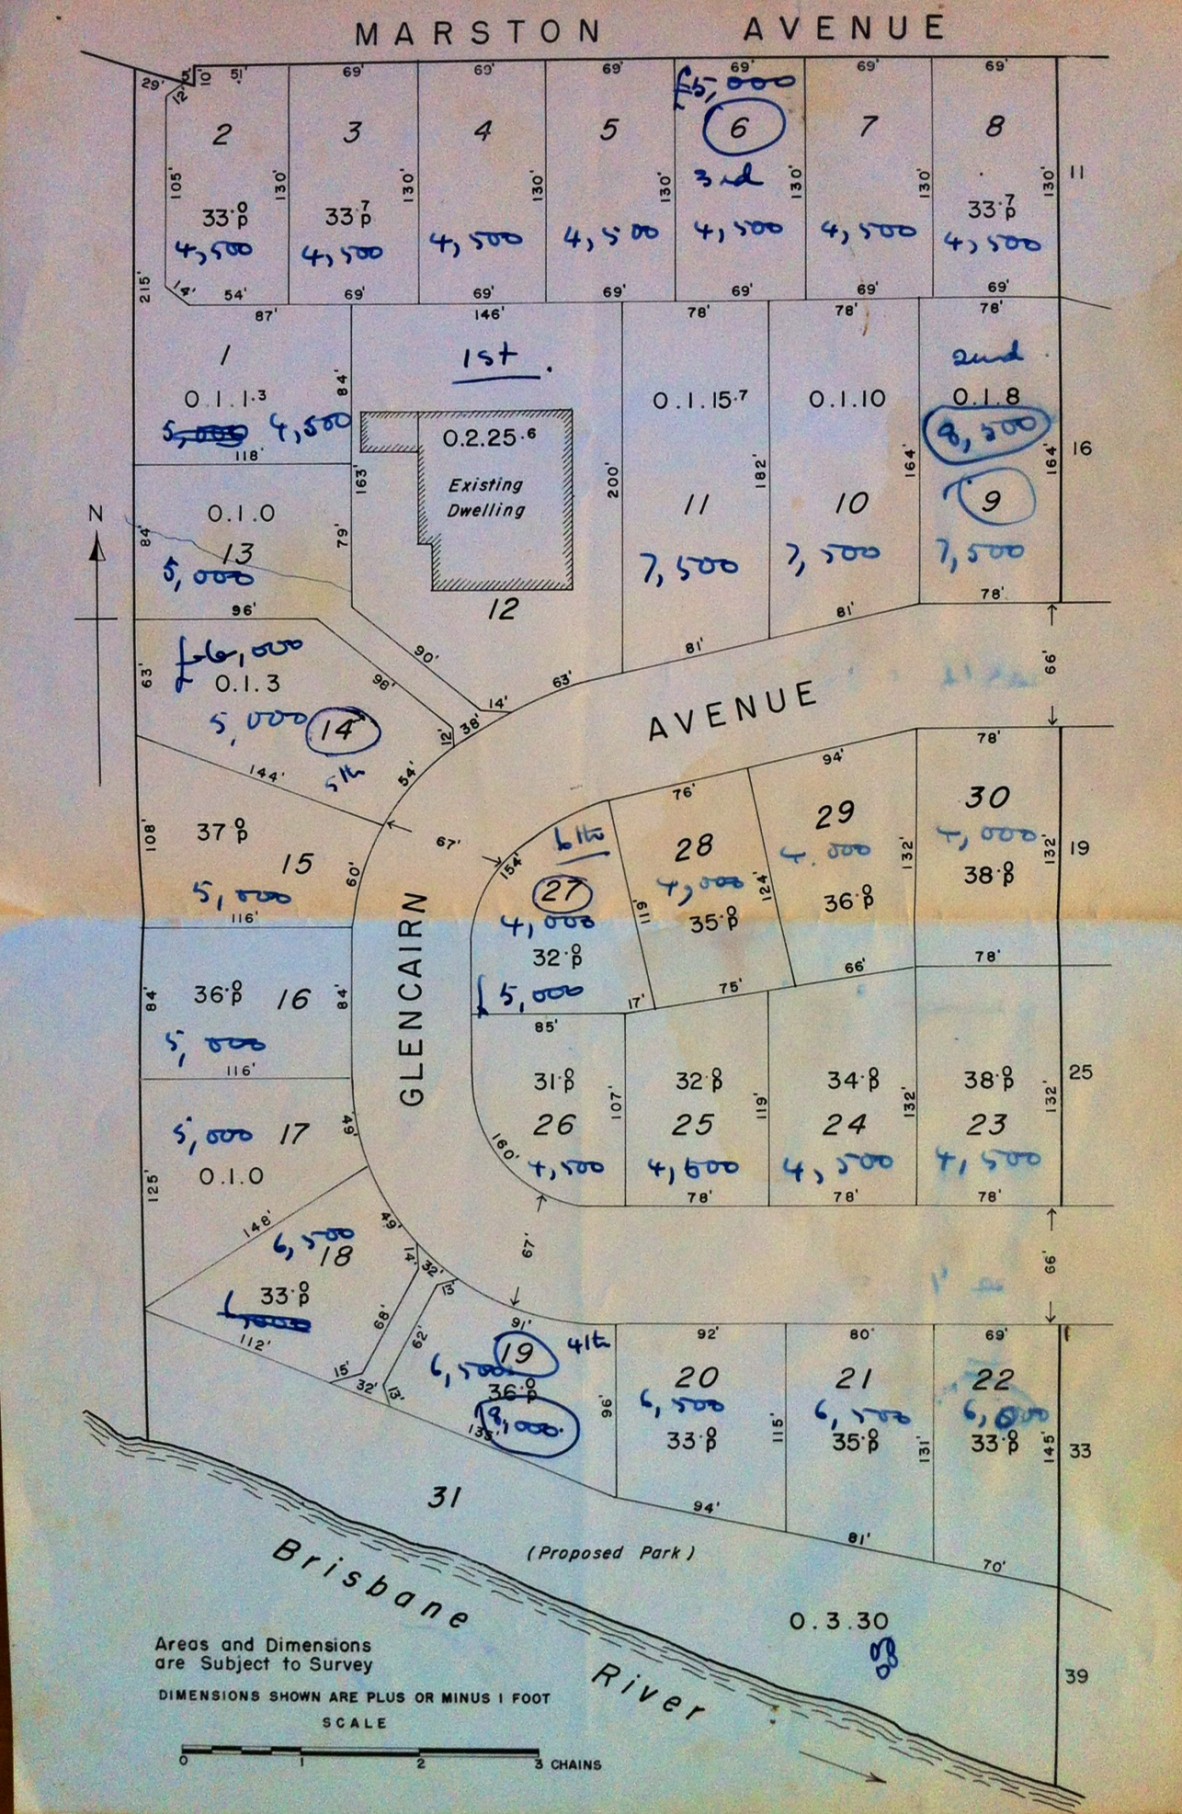 MARSTON AVENUE
29' 5' 10' 51' 69' 69' 69' 69' 69' 69'
12'
£5,000
2 3 4 5 6 7 8
105' 130' 130' 130' 130' 130' 130' 130' 11
3rd
33·0p 33·7p 33·7p
4,500 4,500 4,500 4,500 4,500 4,500 4,500
215' 14' 54' 69' 69' 69' 69' 69' 69'
87' 146' 78' 78' 78'
1 1st 2nd
84'
0.1.1·3 0.1.15·7 0.1.10 0.1.8
5,000 4,500 8,500
118' 0.2.25·6
163' 200' 182' 164' 164' 16
Existing
Dwelling
11 10 9
N
0.1.0
84' 13 79'
5,000 7,500 7,500 7,500
96' 12 81' 78'
81'
£6,000 90'
63' 0.1.3 98' 14' 63' 66'
5,000 14 12' 38'
AVENUE
5th
144' 54'
78'
94'
76'
108' 37·0p 67' 154' 6th 28 29 30
15 60' 27 4,000 4,000 4,000
5,000 4,000 119' 124' 132' 132' 19
116' 32·0p 35·0p 36·0p 38·0p
£5,000
84' 36·0p 16 84' 17' 75' 66' 78'
5,000 85'
116'
GLENCAIRN
31·0p 32·0p 34·0p 38·0p 25
107' 119' 132' 132'
5,000 17 49' 26 25 24 23
0.1.0 160' 4,500 4,500 4,500
125' 78' 78' 78'
148' 49' 67' 66'
6,500 18 14' 32' 13'
33·0p
68' 62' 91' 92' 80' 69'
112' 19 4th 20 21 22
6,500 6,500 6,500
36·0p 96' 115' 131' 145' 33
15' 32' 13' 8,000 33·0p 35·0p 33·0p
31 94' 81' 70'
(Proposed Park)
Brisbane
River
0.3.30
39
Areas and Dimensions
are Subject to Survey
DIMENSIONS SHOWN ARE PLUS OR MINUS 1 FOOT
SCALE
0 1 2 3 CHAINS